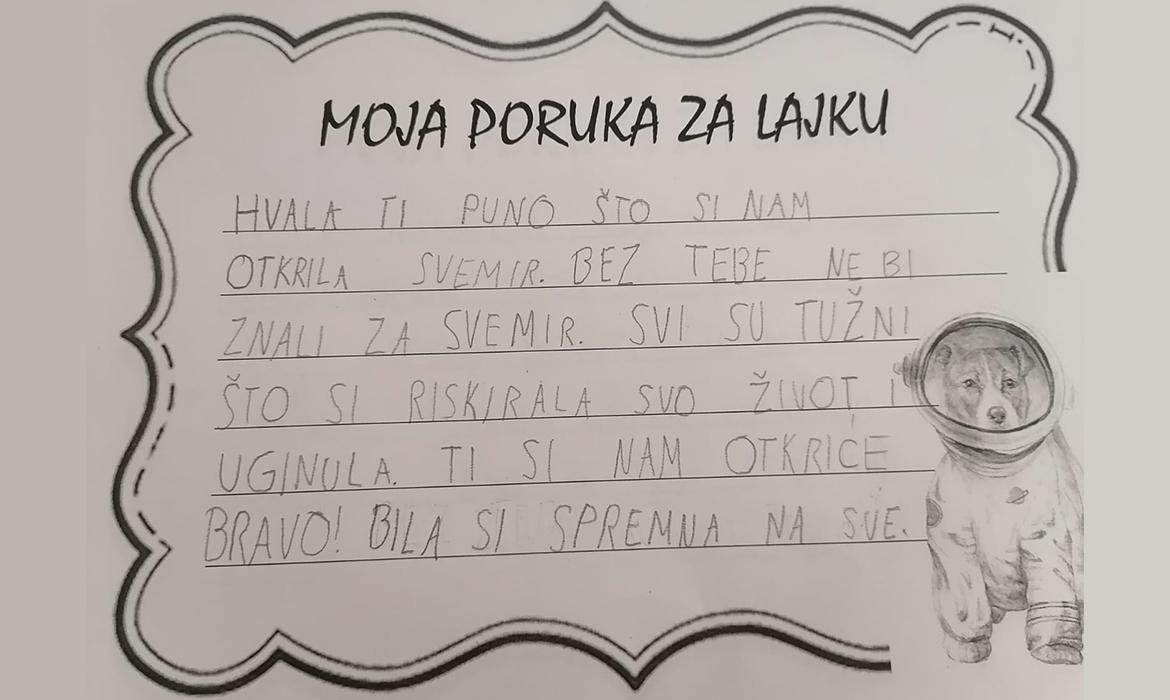 MOJA PORUKA ZA LAJKU
HVALA TI PUNO ŠTO SI NAM
OTKRILA SVEMIR. BEZ TEBE NE BI
ZNALI ZA SVEMIR. SVI SU TUŽNI
ŠTO SI RISKIRALA SVO ŽIVOT I
UGINULA. TI SI NAM OTKRIĆE
BRAVO! BILA SI SPREMNA NA SVE.